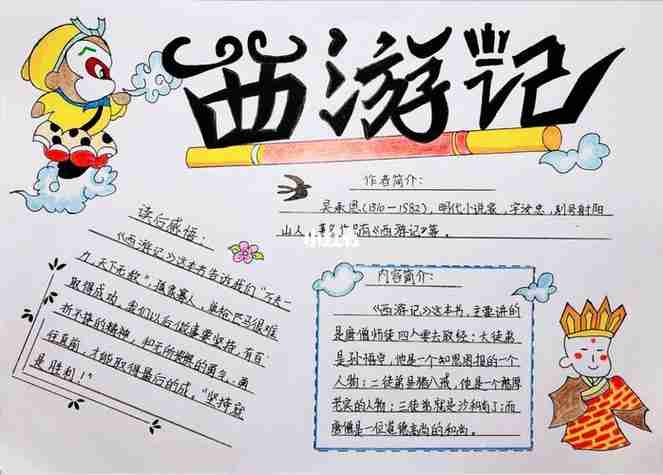 西游记
作者简介：
吴承恩（1510—1582），明代小说家，字汝忠，别号射阳
山人，著名作品有《西游记》等。
读后感悟：
《西游记》这本书告诉我们"万夫一
力，天下无敌"，
取得成功，我们以后做事要坚持，有百
折不挠的精神，和无所畏惧的勇气，勇
往直前，才能取得最后的成，"坚持究
是胜利！"
内容简介：
《西游记》这本书，主要讲的
是唐僧师徒四人要去取经；大徒弟
是孙悟空，他是一个知恩图报的一个
人物；二徒弟是猪八戒，他是一个憨厚
老实的人物；三徒弟就是沙和尚了；而
唐僧是一位道德高尚的和尚。
小红书